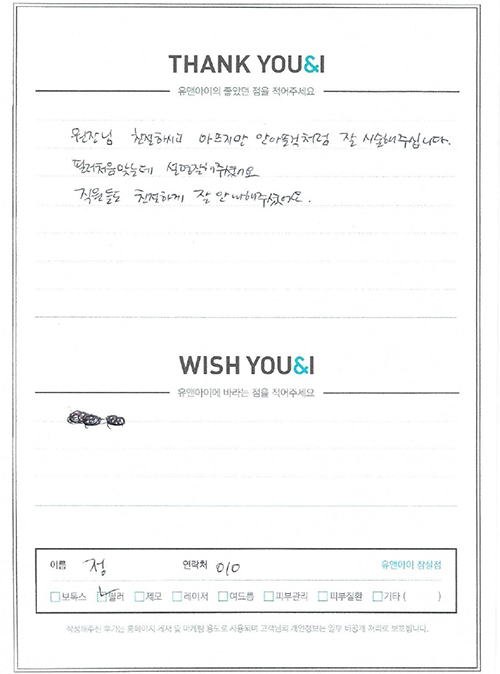 THANK YOU&I
유앤아이의 좋았던 점을 적어주세요
원장님 친절하시고 아프지만 안아플것처럼 잘 시술해주십니다.
필러처음맞는데 설명잘해주셨어요
직원들도 친절하게 잘 안내해주셨어요.
WISH YOU&I
유앤아이에 바라는 점을 적어주세요
이름 정 연락처 010 유앤아이 잠실점
보톡스 필러 제모 레이저 여드름 피부관리 피부질환 기타 ( )
작성해주신 후기는 홈페이지 게재 및 마케팅 용도로 사용되며 고객님의 개인정보는 일부 비공개 처리로 보호됩니다.